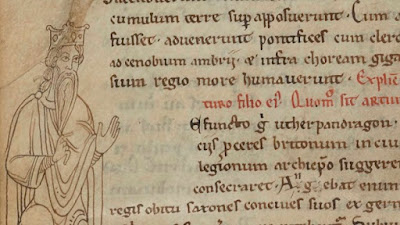 cumulum terre sup apposuerunt. Cum a
fuisset. advenerunt pontifices cum cler
ad cenobium ambrii. & infra choream gig
sium regio more humaverunt. Explic
turo filio ei9. Quom̄ sit artur
efuncto g̊ utherpendragon.
p̄ceres britonum in civi
legionum archiep̄o suggere
consecraret. gebat enim
regis obitu saxones concives suos ex germ